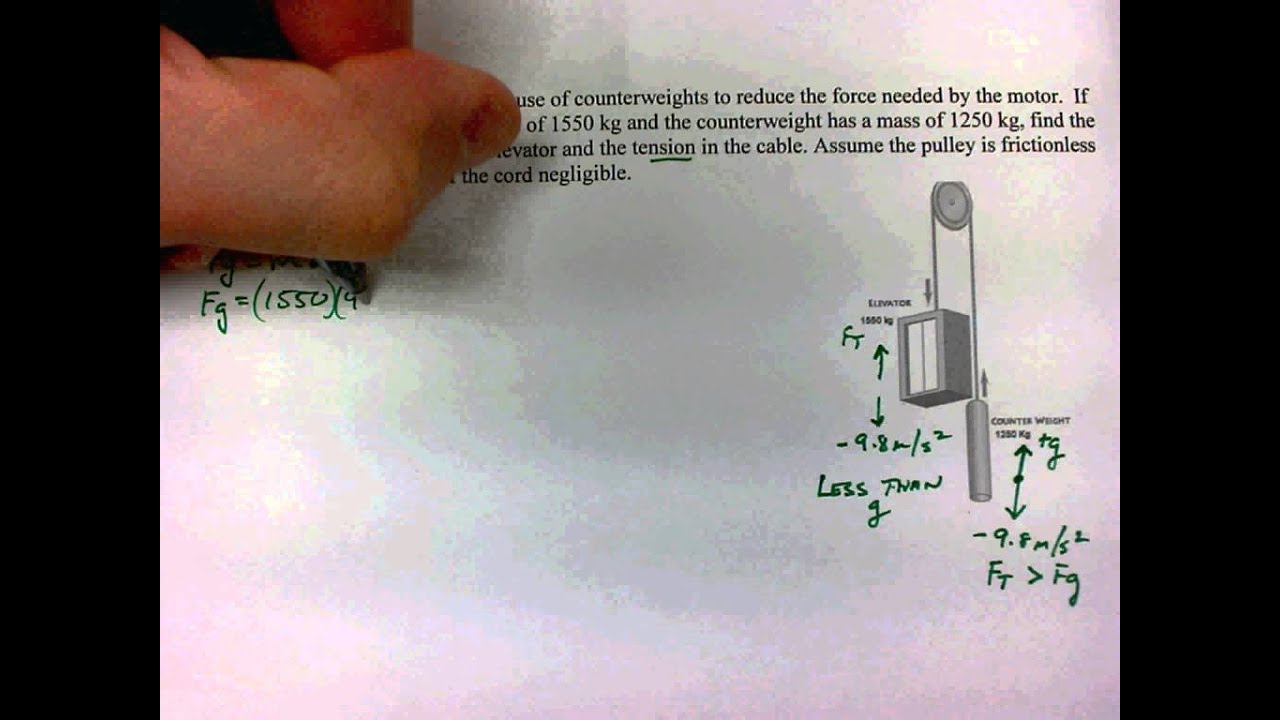 use of counterweights to reduce the force needed by the motor. If
of 1550 kg and the counterweight has a mass of 1250 kg, find the
and the tension in the cable. Assume the pulley is frictionless
the cord negligible.
Fg = (1550)(9
ELEVATOR
1550 kg
FT
-9.8 m/s²
LESS THAN
g
COUNTER WEIGHT
1250 Kg
+g
-9.8 m/s²
FT > Fg